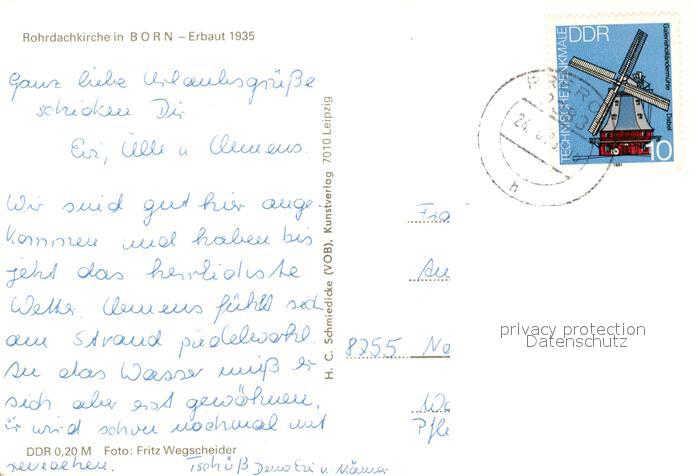 Rohrdachkirche in BORN – Erbaut 1935
Ganz liebe Urlaubsgrüße
schicken Dir
Eri, Ulli u Clemens
Wir sind gut hier ange-
kommen und haben bis
jetzt das herrlichste
Wetter. Clemens fühlt sich
am Strand pudelwohl.
An das Wasser muß er
sich aber erst gewöhnen,
Er wird schon nochmal mit
DDR 0,20 M Foto: Fritz Wegscheider
Tschüß Deine Eri u. Männer
H. C. Schmiedicke (VOB), Kunstverlag 7010 Leipzig
DDR
TECHNISCHE DENKMALE
Galerieholländermühle Dabel
1981
10
PREROW
h
8255
privacy protection
Datenschutz